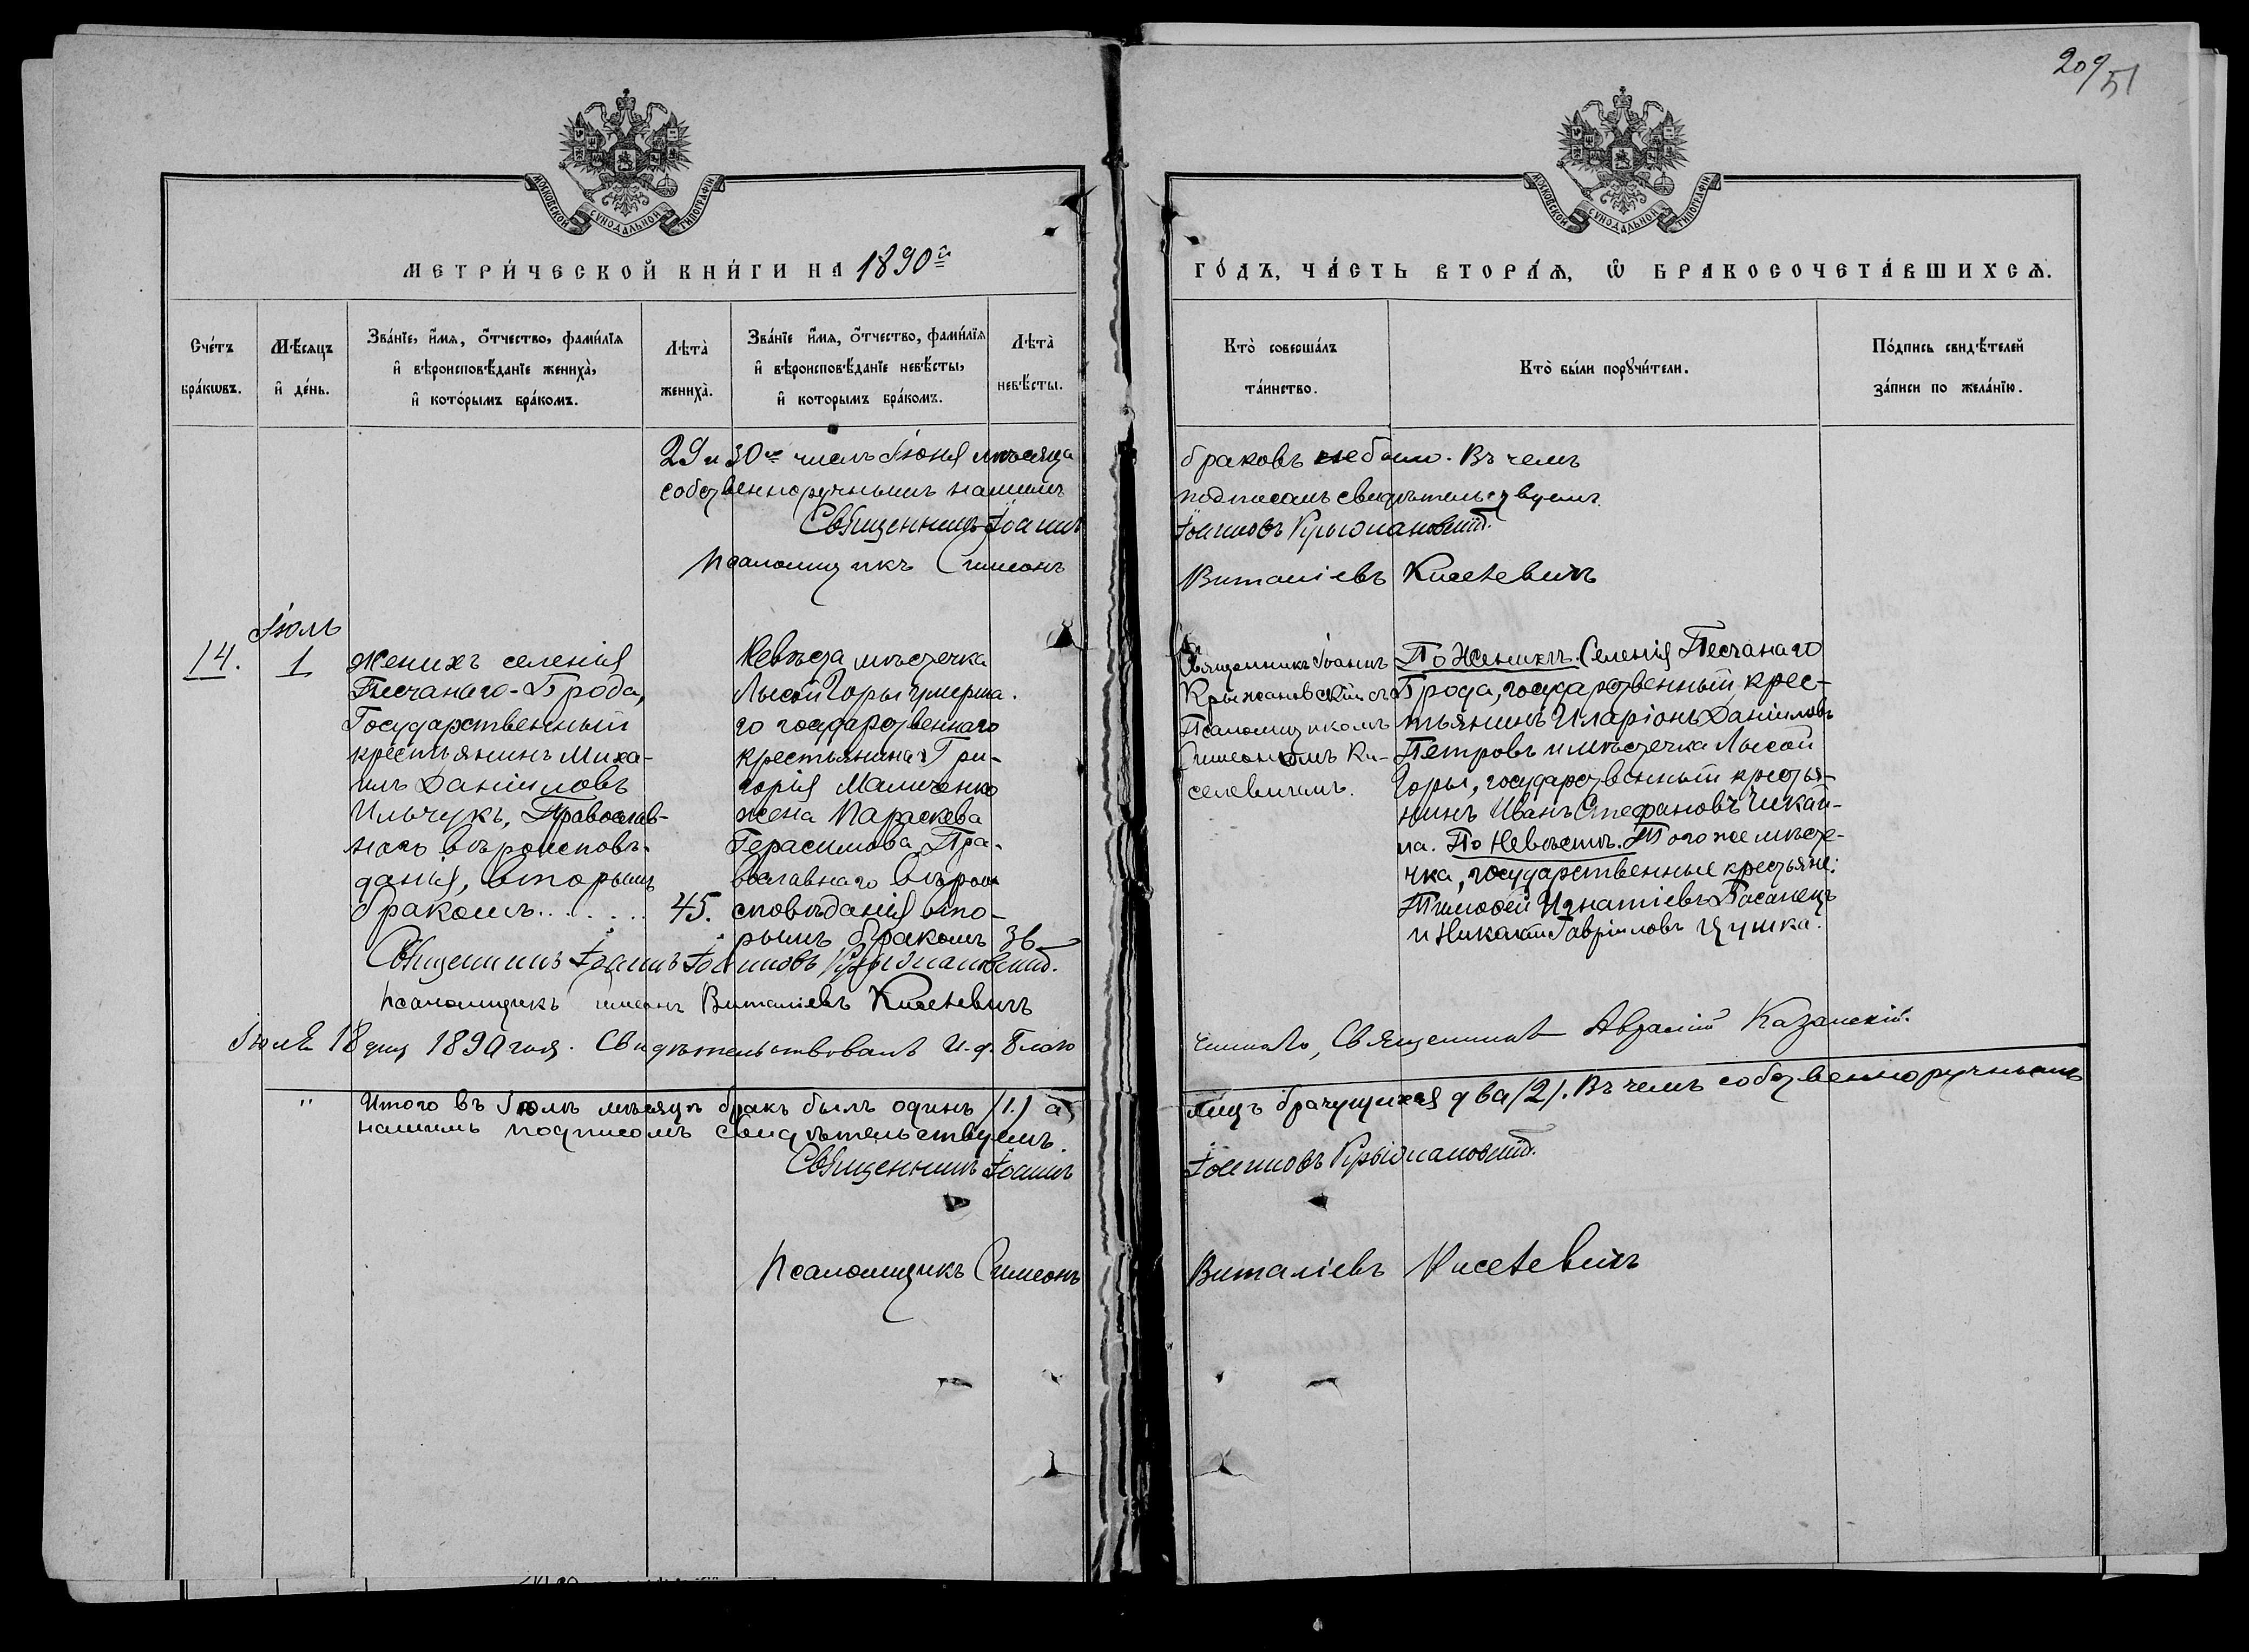 209
51
МОСКОВСКОЙ СѴНОДАЛЬНОЙ ТИПОГРАФІИ
МОСКОВСКОЙ СѴНОДАЛЬНОЙ ТИПОГРАФІИ
МЕТРИ́ЧЕСКОЙ КНИ́ГИ НА 1890й
ГО́ДЪ, ЧА́СТЬ ВТОРА́Ѧ, Ѡ҆ БРАКОСОЧЕТА́ВШИХСѦ.
Сче́тъ бра́кѡвъ.
Мѣ́сѧцъ и҆ де́нь.
Зва́нїе, и҆́мѧ, ѻ҆́тчество, фами́лїѧ
и҆ вѣроисповѣ́данїе жениха̀,
и҆ кото́рымъ бра́комъ.
Лѣта̀ жениха̀.
Зва́нїе и҆́мѧ, ѻ҆́тчество, фами́лїѧ
и҆ вѣроисповѣ́данїе невѣ́сты,
и҆ которымъ бра́комъ.
Лѣта̀ невѣ́сты.
Кто̀ соверша́лъ
та́инство.
Кто̀ бы́ли порꙋчи́тели.
По́дпись свидѣ́телей
за́писи по жела́нїю.
29 и 30хъ числъ Іюня мѣсяца
собственноручнымъ нашимъ
Священникъ Іоаннъ
Псаломщикъ Симеонъ
браковъ небыло. Въ чемъ
подписомъ свидѣтельствуемъ.
Іоанновъ Крыжановскій.
Виталіевъ Киселевичъ
Іюль
14.
1
Женихъ селенія
Песчанаго-Брода,
Государственный
крестьянинъ Миха-
илъ Даніиловъ
Ильчукъ, Православ-
наго вѣроисповѣ-
данія, вторымъ
бракомъ......
45.
Невѣста мѣстечка
Лысой Горы умерша-
го государственнаго
крестьянина Гри-
горія Мальченко
жена Параскева
Герасимова, Пра-
вославнаго вѣрои
сповѣданія вто-
рымъ бракомъ
36
Священникъ Іоаннъ
Крыжановскій съ
Псаломщикомъ
Симеономъ Ки-
селевичемъ.
По Женихѣ. Селенія Песчанаго
Брода, государственный крес-
тьянинъ Иларіонъ Даніиловъ
Петровъ и мѣстечка Лысой
Горы, государственный крестья-
нинъ Иванъ Стефановъ Чикай-
ла. По Невѣстѣ. Того же мѣсте-
чка, государственные крестьяне:
Тимоѳей Игнатіевъ Басанецъ
и Никай Гавріиловъ Цушка.
Священникъ Іоаннъ Іоанновъ Крыжановскій.
Псаломщикъ Симеонъ Виталіевъ Киселевичъ
Іюля 18 дня 1890 года. Свидѣтельствовалъ И. д. Благо
чиннаго, Священникъ Авраамій Казанскій.
" Итого въ Іюлѣ мѣсяцѣ бракъ былъ одинъ (1.) а
лицъ брачущихся два (2). Въ чемъ собственноручнымъ
нашимъ подписомъ свидѣтельствуемъ.
Священникъ Іоаннъ
Іоанновъ Крыжановскій.
Псаломщикъ Симеонъ
Виталіевъ Киселевичъ